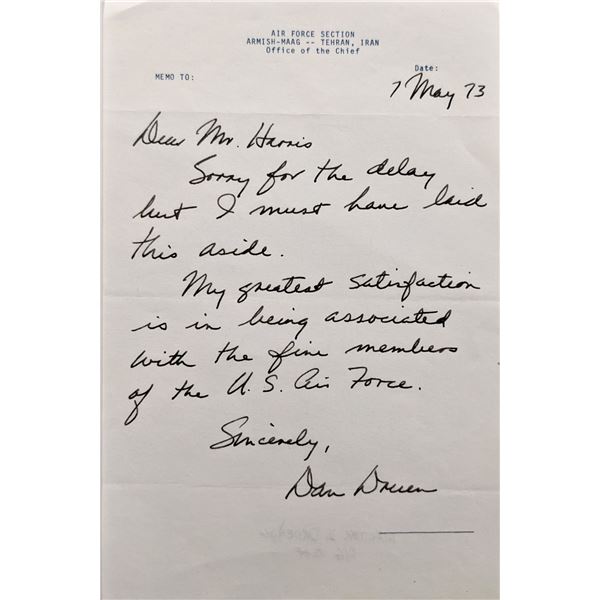 AIR FORCE SECTION
ARMISH-MAAG -- TEHRAN, IRAN
Office of the Chief
MEMO TO:
Date:
7 May 73
Dear Mr. Harris
Sorry for the delay
but I must have laid
this aside.
My greatest satisfaction
is in being associated
with the fine members
of the U.S. Air Force.
Sincerely,
Dan Druen